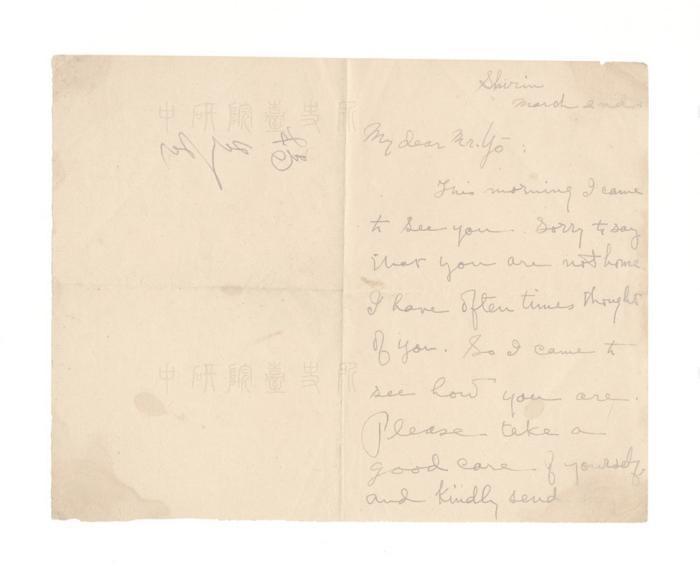 Shirin
March 2nd.
My dear Mr. Yō:
This morning I came
to see you. Sorry to say
that you are not home
I have often times thought
of you. So I came to
see how you are.
Please take a
good care of yourself,
and kindly send
中研院臺史所
中研院臺史所